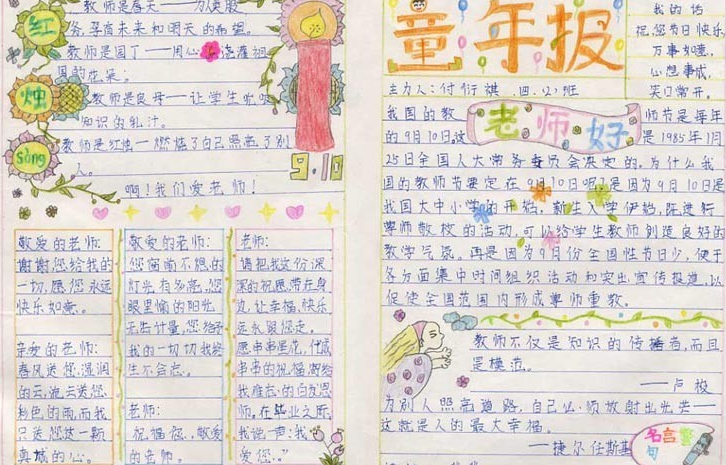 教师是春天——为人类服
务,孕育未来和明天的希望。
教师是园丁——用心浇灌祖
国的花朵。
教师是良母——让学生吮吸
知识的乳汁。
教师是红烛——燃烧了自己照亮了别
人。
啊!我们爱老师!
红
烛
sòng
9.10
敬爱的老师:
谢谢您给我的
一切,愿您永远
快乐如意。
亲爱的老师:
春风送您,湿润
的云,流云送您
粉色的雨,而我
只送您这一颗
真诚的心。
敬爱的老师:
您窗前不熄的
灯光有多亮,您
眼里愉的阳光
无告计量,您给予
我的一切切我终
生不会忘。
老师:
祝福您,敬爱
的老师。
老师:
请把我这份深
深的祝愿,带在身
边,让幸福、快乐
远永留您走。
愿串串星花,代成
串串的祝福,撒给
我难忘的白发恩
师,在毕业之际
我说一声:我
爱您。”
童年报
我的话
祝您节日快乐
万事如意,
心想事成,
笑口常开。
主力人:付衍祺 四.(2)班
老师好
我国的教师节是每年
的9月10日,这是1985年1月
25日全国人大常务委员会决定的。为什么我
国的教师节要定在9月10日呢?是因为9月10日是
我国大中小学的开始,新生入学伊始,陈逢新
尊师敬校的活动,可以给学生教师创造良好的
教学气氛。再是因为9月份全国性节日少,便于
各方面集中时间组织活动和突出宣传报道,以
促使全国范围内形成尊师重教。
教师不仅是知识的传播者,而且
是模范。
——卢梭
为别人照亮道路,自己必须放射出光芒——
这就是人的最大幸福。
——捷尔任斯基
名言警
句